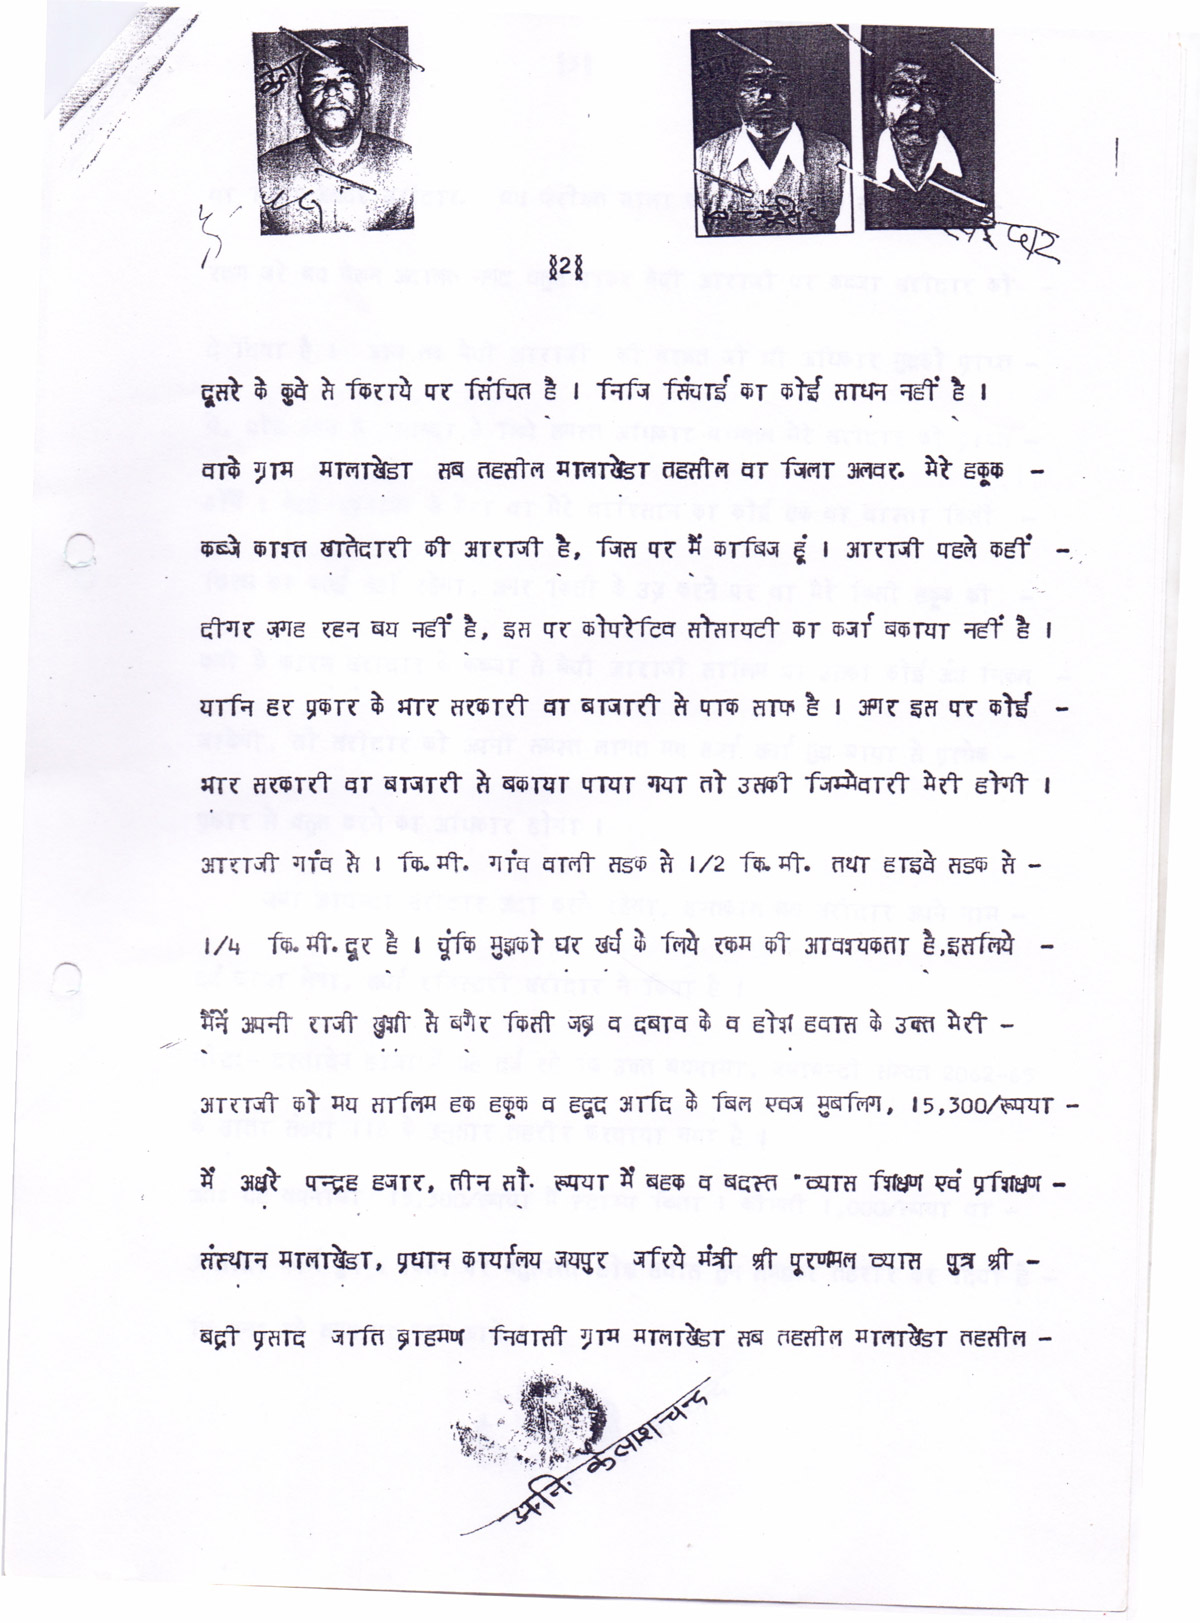 क्रेता
खरीददार
§2§
दूसरे के कुवे से किराये पर सिंचित है । निजि सिंचाई का कोई साधन नहीं है ।
वाके ग्राम मालाखेडा सब तहसील मालाखेडा तहसील वा जिला अलवर. मेरे हकूक -
कब्जे काश्त खातेदारी की आराजी है, जिस पर मैं काबिज हूं । आराजी पहले कहीं -
दीगर जगह रहन बय नहीं है, इस पर कोपरेटिव सोसायटी का कर्जा बकाया नहीं है ।
यानि हर प्रकार के भार सरकारी वा बाजारी से पाक साफ है । अगर इस पर कोई -
भार सरकारी वा बाजारी से बकाया पाया गया तो उसकी जिम्मेवारी मेरी होगी ।
आराजी गांव से 1 कि.मी. गांव वाली सडक से 1/2 कि.मी. तथा हाइवे सडक से -
1/4 कि.मी.दूर है । चूंकि मुझको घर खर्च के लिये रकम की आवश्यकता है,इसलिये -
मैंनें अपनी राजी खुशी से बगैर किसी जब्र व दबाव के व होश हवास के उक्त मेरी -
आराजी को मय सालिम हक हकूक व हदूद आदि के बिल एवज मुबलिग, 15,300/रूपया -
में अक्षरे पन्द्रह हजार, तीन सौ. रूपया में बहक व बदस्त "व्यास शिक्षण एवं प्रशिक्षण -
संस्थान मालाखेडा, प्रधान कार्यालय जयपुर जरिये मंत्री श्री पूरणमल व्यास पुत्र श्री -
बद्री प्रसाद जाति ब्राहमण निवासी ग्राम मालाखेडा सब तहसील मालाखेडा तहसील -
अ.नि. कैलाशचन्द